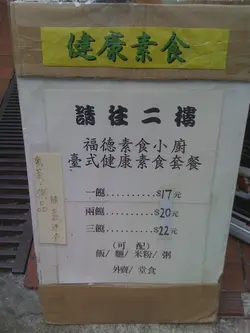 健康素食
請往二樓
福德素食小廚
臺式健康素食套餐
一餸..........$17元
兩餸..........$20元
三餸..........$22元
(可 配)
飯/麵/米粉/粥
外賣/堂食